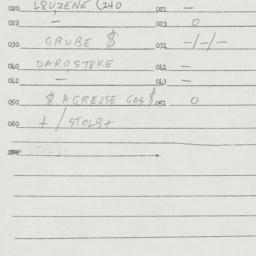 020 L8UZENE (240 001 —
022 — 023 0
030 GRUBE $ 031 -/-/-
040 DARO,578KE 041 —
042 — 043 —
050 $ AGREJSE GAS $ 051 0
060 + / STOLB+